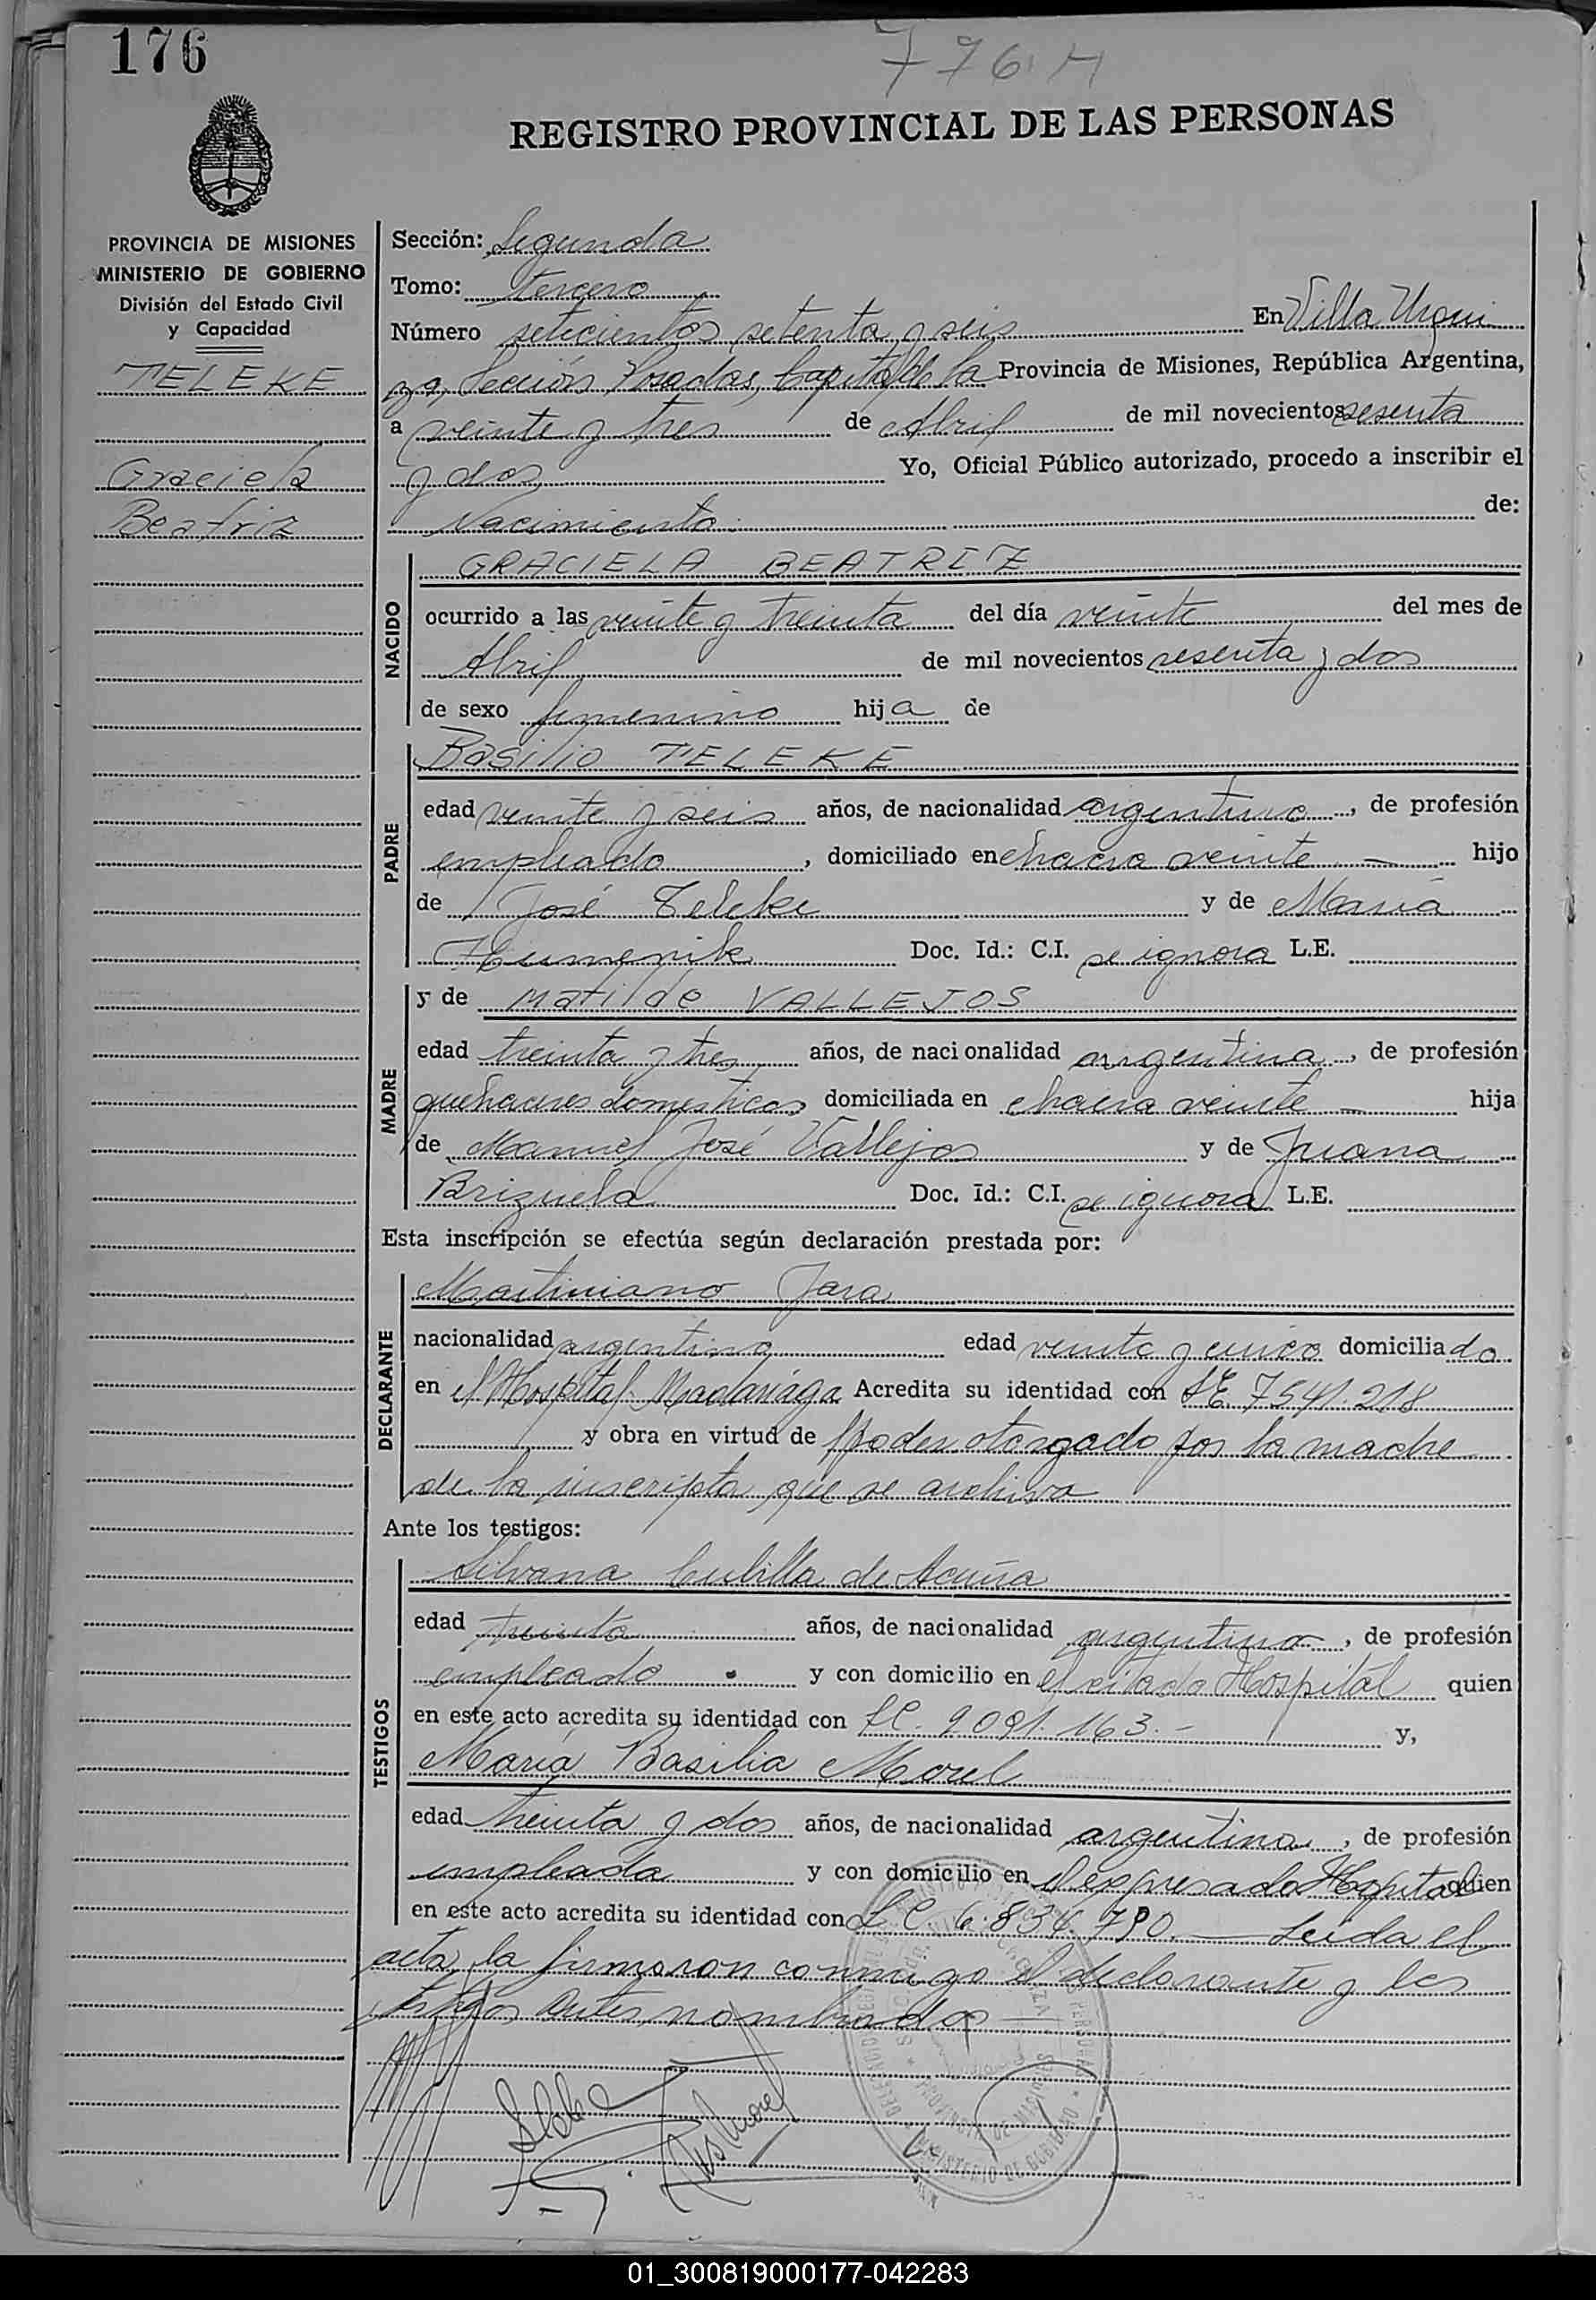 176
776 M
REGISTRO PROVINCIAL DE LAS PERSONAS
PROVINCIA DE MISIONES
MINISTERIO DE GOBIERNO
División del Estado Civil
y Capacidad
TELEKE
Graciela
Beatriz
Sección: Segunda
Tomo: tercero
Número setecientos setenta y seis En Villa Urqui
za, Sección, Posadas, Capital de la Provincia de Misiones, República Argentina,
a veinte y tres de Abril de mil novecientos sesenta
y dos Yo, Oficial Público autorizado, procedo a inscribir el
Nacimiento de:
NACIDO
GRACIELA BEATRIZ
ocurrido a las veinte y treinta del día veinte del mes de
Abril de mil novecientos sesenta y dos
de sexo femenino hija de
PADRE
Basilio TELEKE
edad veinte y seis años, de nacionalidad argentino, de profesión
empleado, domiciliado en chacra veinte — hijo
de José Teleke y de María
Humenik Doc. Id.: C.I. se ignora L.E.
MADRE
y de Matilde VALLEJOS
edad treinta y tres años, de nacionalidad argentina, de profesión
quehaceres domesticos domiciliada en chacra veinte — hija
de Manuel José Vallejos y de Juana
Brizuela Doc. Id.: C.I. se ignora L.E.
Esta inscripción se efectúa según declaración prestada por:
DECLARANTE
Martiniano Jara
nacionalidad argentina edad veinte y cinco domiciliado
en el Hospital Madariaga Acredita su identidad con LE. 7541.218
y obra en virtud de poder otorgado por la madre
de la inscripta que se archiva
Ante los testigos:
TESTIGOS
Silvana Cubilla de Acuña
edad treinta años, de nacionalidad argentina, de profesión
empleada y con domicilio en el citado Hospital quien
en este acto acredita su identidad con LC. 9.091.163.- y,
María Basilia Morel
edad treinta y dos años, de nacionalidad argentina, de profesión
empleada y con domicilio en el expresado Hospital quien
en este acto acredita su identidad con LC 6.834.790.— Leida el
acta, la firmaron conmigo el declarante y los
testigos antes nombrados
PROVINCIA DE MISIONES
MINISTERIO DE GOBIERNO
01_300819000177-042283